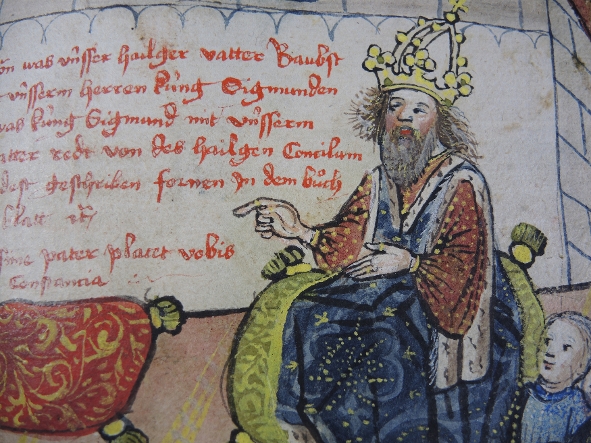 was vnser hailger vatter Baubst
vnserm herren kúng Sigmunden
was kúng Sigmund mit vnserm
atter redt von des hailgen Concilium
geschriben fornen jn dem bůch
blatt
pater placet vobis
Constancia